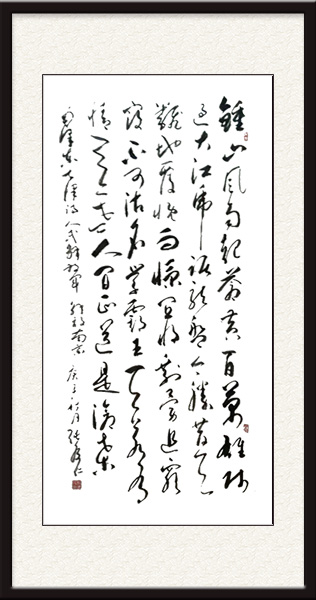 鍾山風雨起蒼黃百萬雄师
过大江虎踞龙盤今勝昔天
翻地覆慨而慷宜将剩勇追窮
寇不可沽名学霸王天若有
情天亦老人间正道是滄桑
毛泽东七律诗人民解放军占领南京 庚子秋月